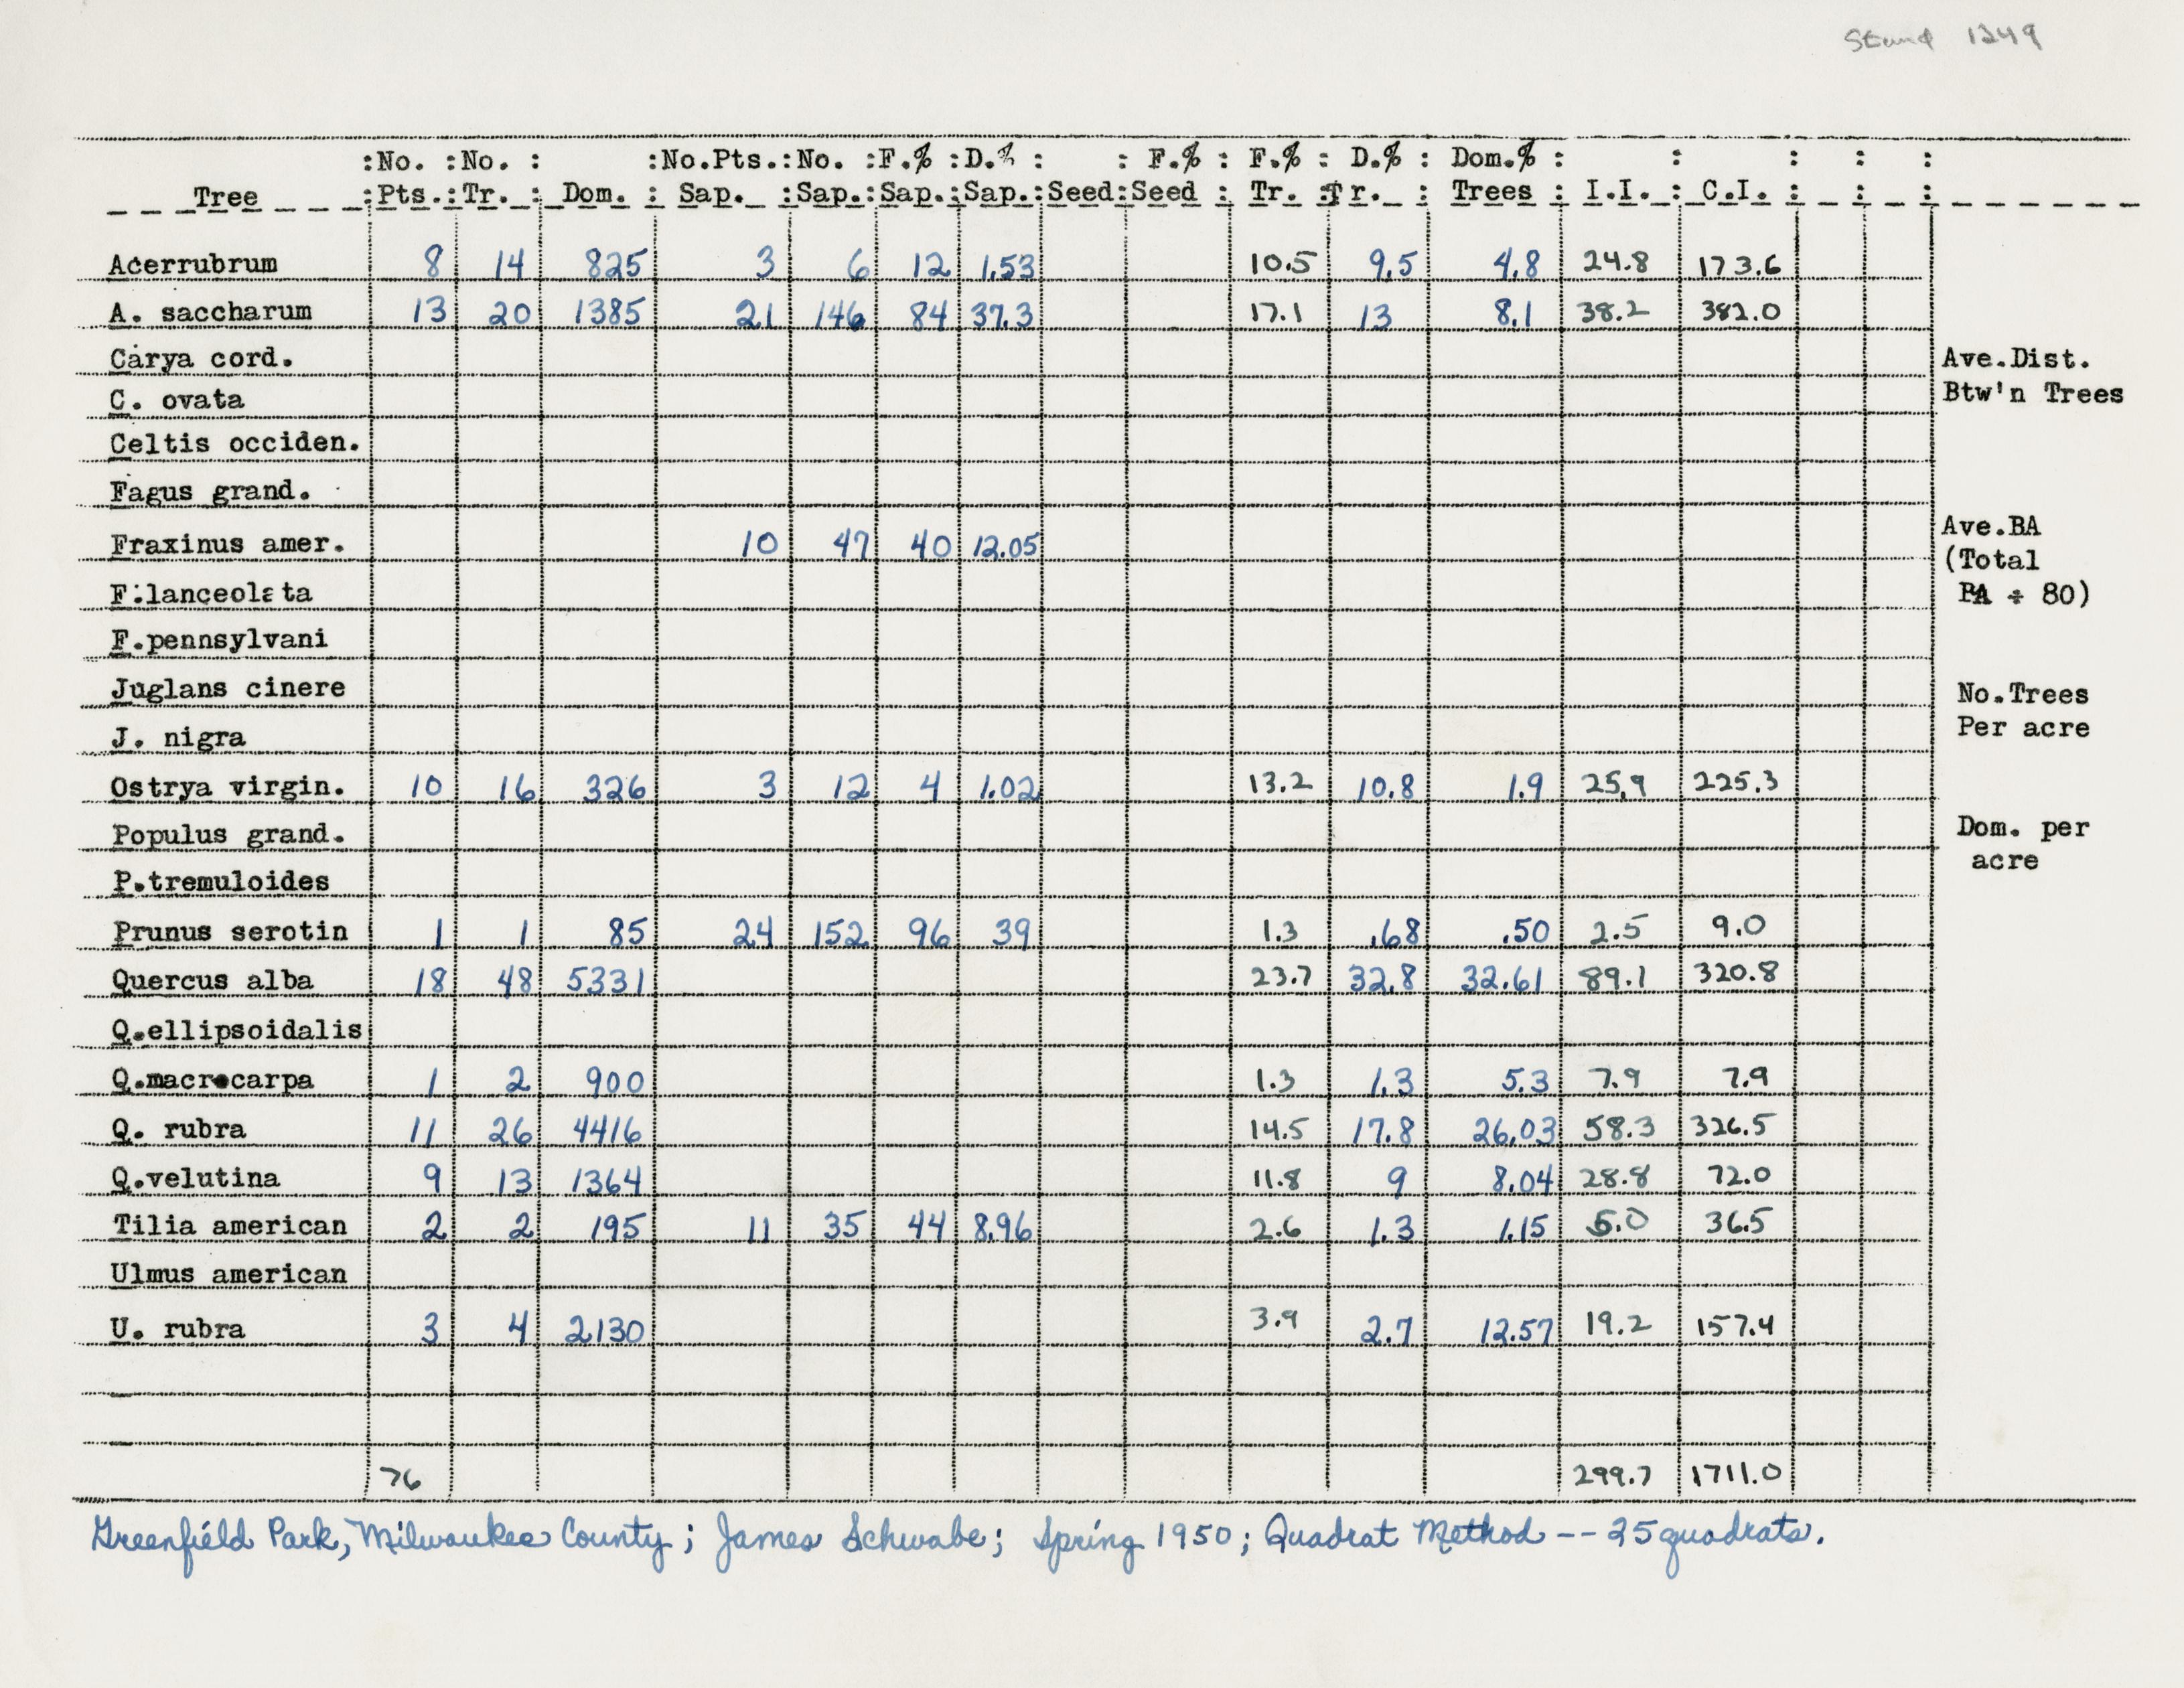 Stand 1249
:No. :No. : :No.Pts.:No. :F.% :D.% : : F.% : F.% : D.% : Dom.% : : : : :
Tree :Pts.:Tr. : Dom. : Sap. :Sap.:Sap.:Sap.:Seed:Seed : Tr. :Tr. : Trees : I.I. : C.I. : : :
Acerrubrum 8 14 825 3 6 12 1.53 10.5 9.5 4.8 24.8 173.6
A. saccharum 13 20 1385 21 146 84 37.3 17.1 13 8.1 38.2 382.0
Carya cord.
Ave.Dist.
C. ovata
Btw'n Trees
Celtis occiden.
Fagus grand.
Ave.BA
Fraxinus amer. 10 47 40 12.05
(Total
F.lanceolata
BA ÷ 80)
F.pennsylvani
Juglans cinere
No.Trees
J. nigra
Per acre
Ostrya virgin. 10 16 326 3 12 4 1.02 13.2 10.8 1.9 25.9 225.3
Populus grand.
Dom. per
acre
P.tremuloides
Prunus serotin 1 1 85 24 152 96 39 1.3 .68 .50 2.5 9.0
Quercus alba 18 48 5331 23.7 32.8 32.61 89.1 320.8
Q.ellipsoidalis
Q.macrocarpa 1 2 900 1.3 1.3 5.3 7.9 7.9
Q. rubra 11 26 4416 14.5 17.8 26.03 58.3 326.5
Q.velutina 9 13 1364 11.8 9 8.04 28.8 72.0
Tilia american 2 2 195 11 35 44 8.96 2.6 1.3 1.15 5.0 36.5
Ulmus american
U. rubra 3 4 2130 3.9 2.7 12.57 19.2 157.4
76 299.7 1711.0
Greenfield Park, Milwaukee County; James Schwabe; Spring 1950; Quadrat Method -- 25 quadrats.